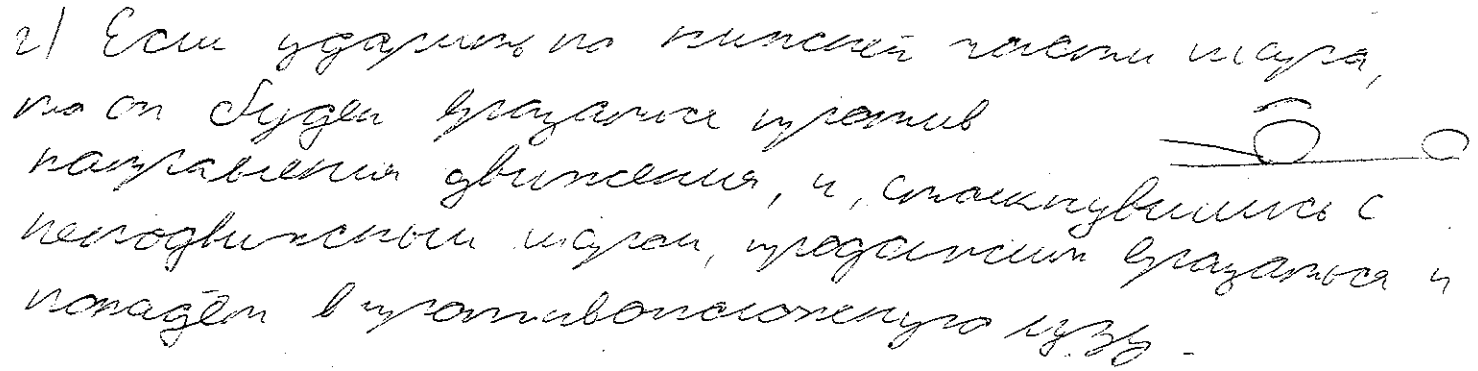 г) Если ударить по нижней части шара,
то он будет вращаться против
направления движения, и, столкнувшись с
неподвижным шаром, продолжит вращаться и
попадёт в противоположную лузу.